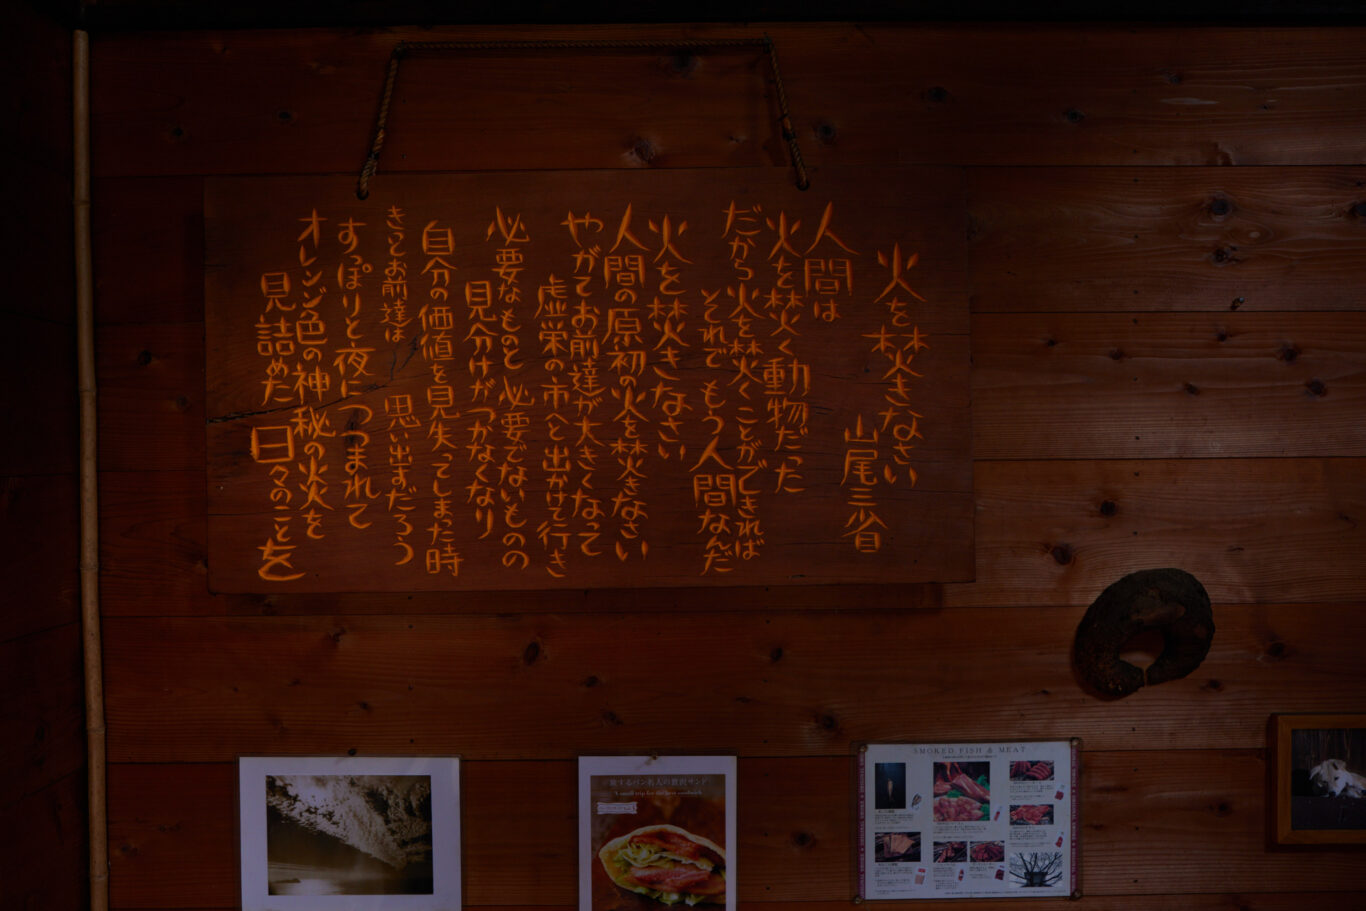 火を焚きなさい
山尾三省
人間は
火を焚く動物だった
だから火を焚くことができれば
それでもう人間なんだ
火を焚きなさい
人間の原初の火を焚きなさい
やがてお前達が大きくなって
虚栄の市へと出かけて行き
必要なものと 必要でないものの
見分けがつかなくなり
自分の価値を見失ってしまった時
きっとお前達は 思い出すだろう
すっぽりと夜につつまれて
オレンジ色の神秘の火を
見詰めた 日々のことを
旅するパン名人の贅沢サンド
A small trip for the best sandwich
SMOKED FISH & MEAT